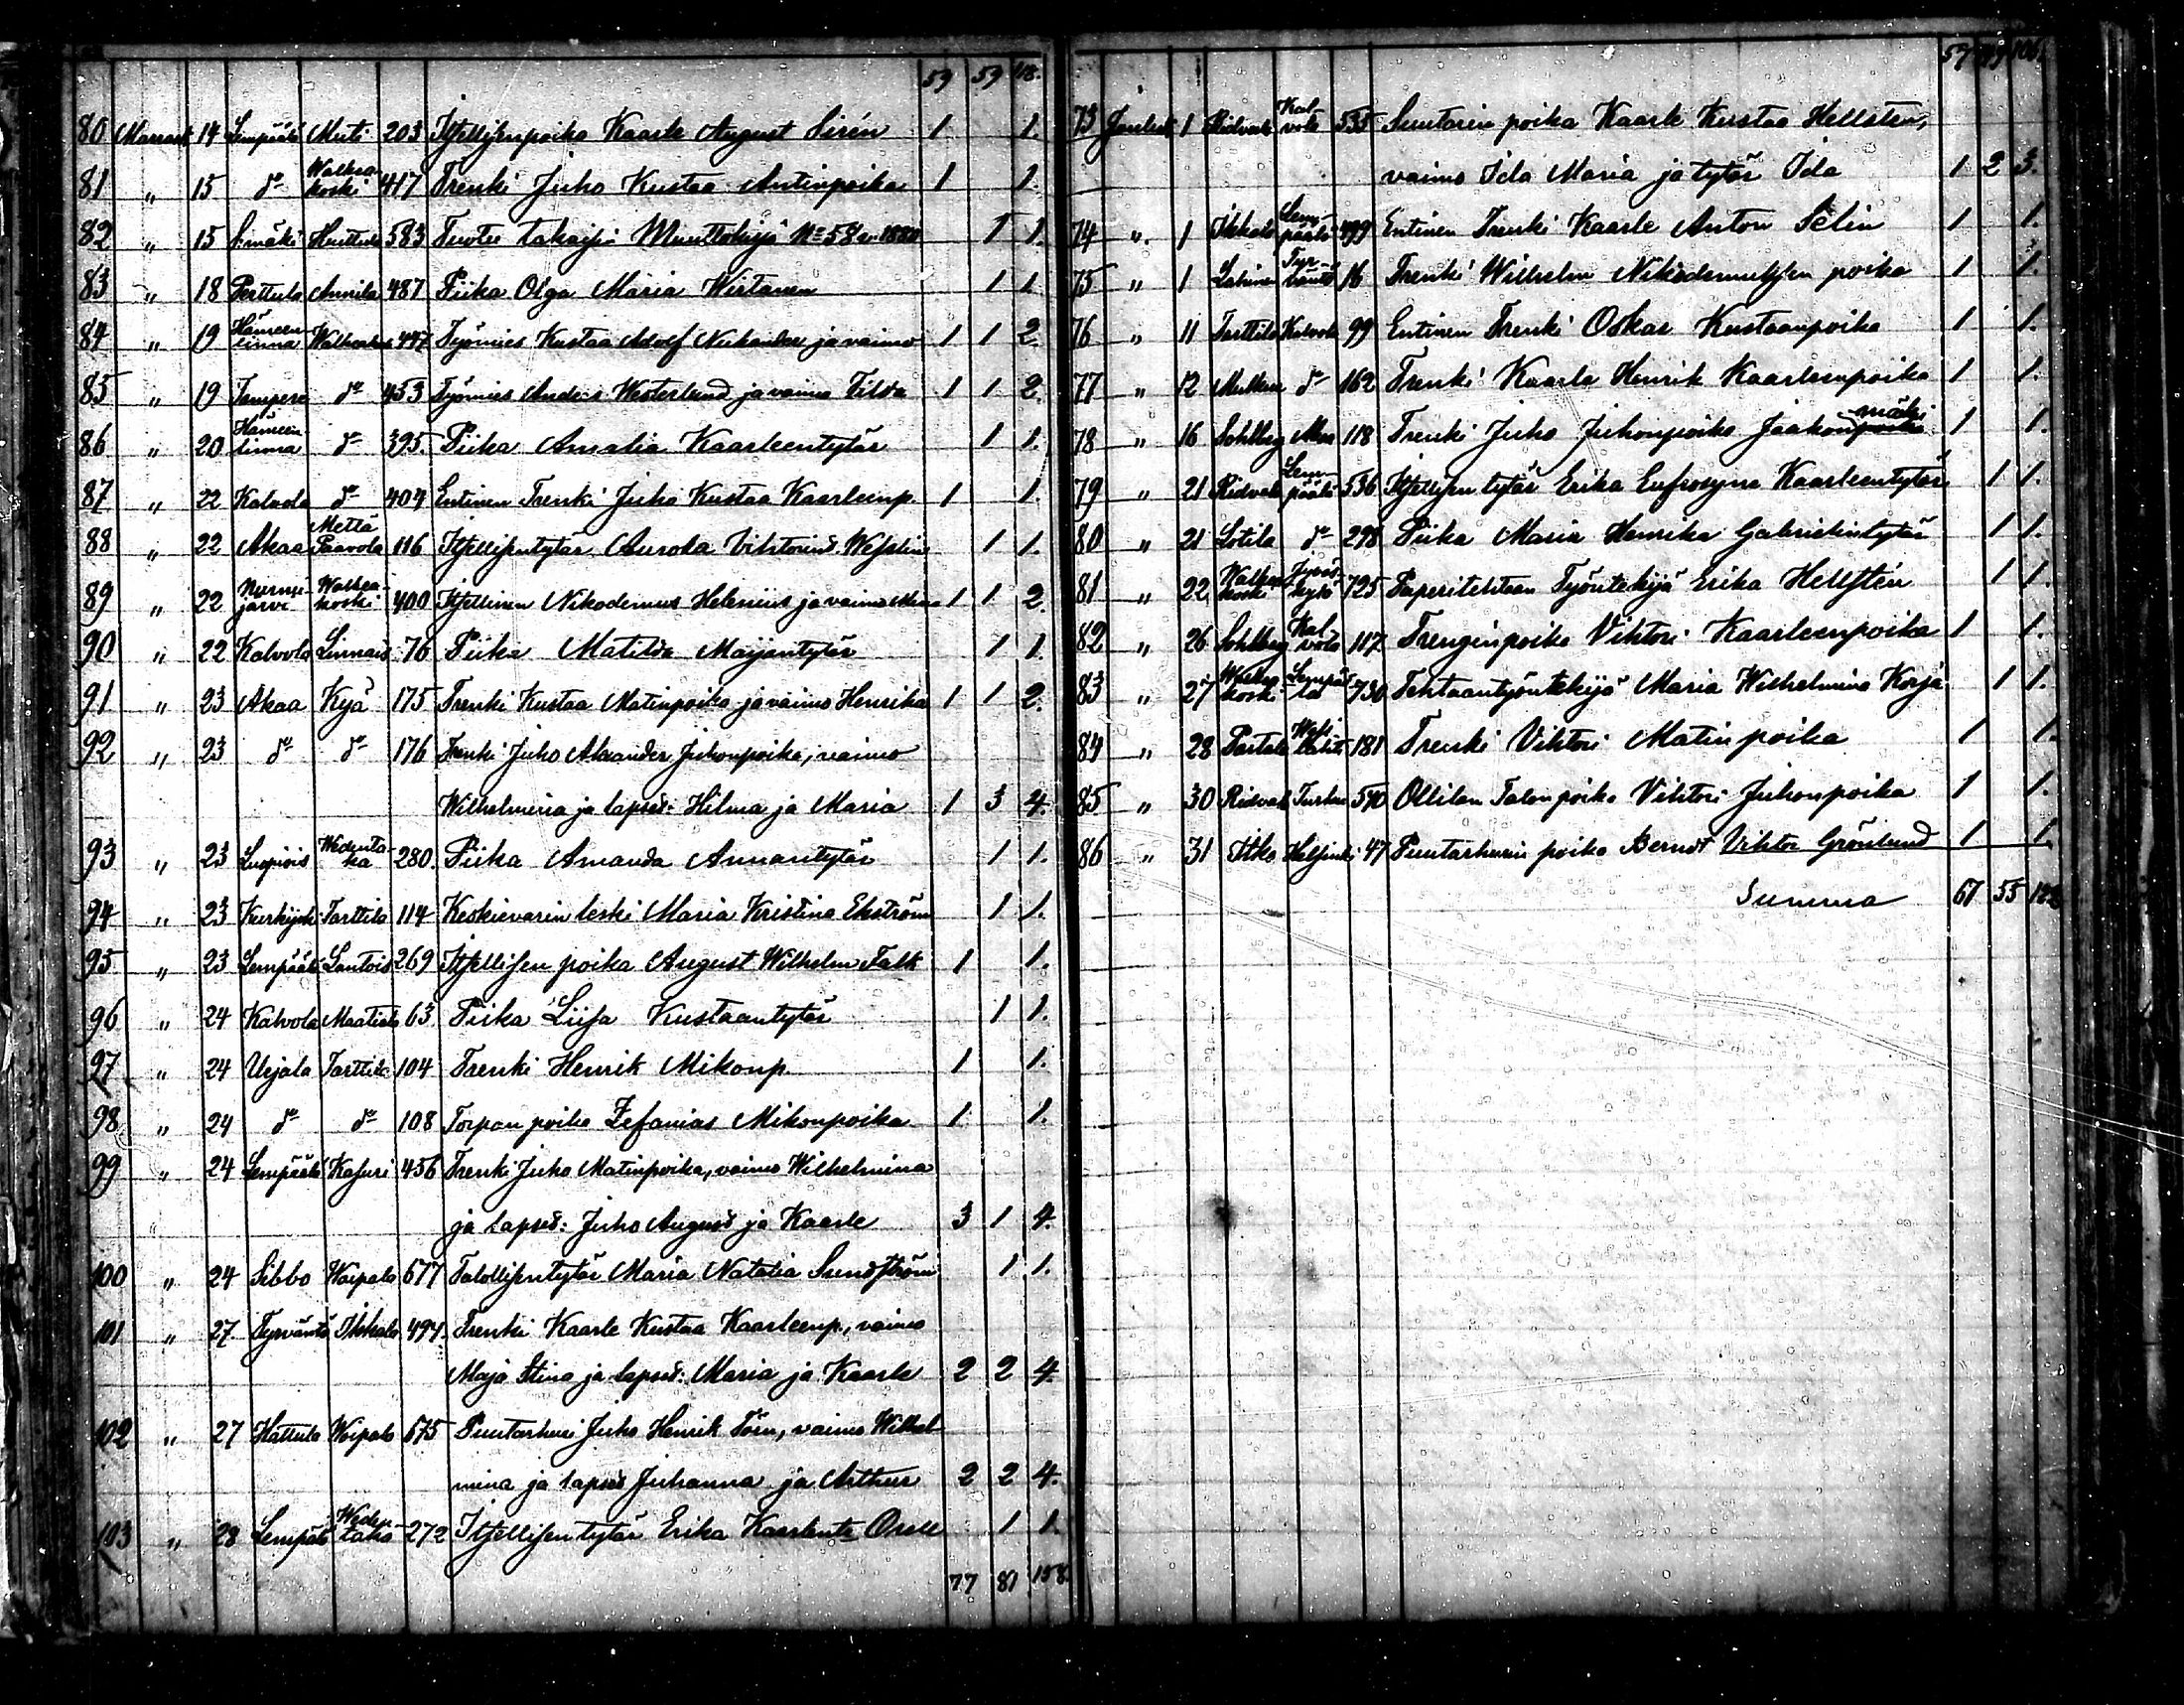 59 59 118.
80 Marrask. 14 Lempäälä Muti 203 Itsellisenpoika Kaarle August Sirén 1 1.
81 " 15 do Walkeakoski 417 Trenki Juho Kustaa Antinpoika 1 1.
82 " 15 S:mäki Huittula 583 Tuotu takaisin Muuttokirja No 58 v. 1880 1 1.
83 " 18 Perttula Annila 487 Piika Olga Maria Wirtanen 1 1
84 " 19 Hämeenlinna Walkeakoski 447 Työmies Kustaa Adolf Nikander ja vaimo 1 1 2.
85 " 19 Tampere do 453 Työmies Anders Westerlund ja vaimo Tilda 1 1 2.
86 " 20 Hämeenlinna do 395. Piika Amalia Kaarleentytär 1 1.
87 " 22 Kalvola do 404 Entinen Trenki Juho Kustaa Kaarleenp. 1 1.
88 " 22 Akaa Mettä Paavola 116 Itsellisentytär Aurora Vihtorina Weslin 1 1.
89 " 22 Nurmijärvi Walkeakoski 400 Itsellinen Nikodemus Helenius ja vaimo 1 1 2.
90 " 22 Kalvola Linnais 76 Piika Matilda Maijantytär 1 1.
91 " 23 Akaa Kyjä 175 Trenki Kustaa Matinpoika ja vaimo Henrika 1 1 2.
92 " 23 do do 176 Trenki Juho Aleksander Juhonpoika, vaimo
Wilhelmina ja lapset: Hilma ja Maria 1 3 4.
93 " 23 Luopiois Wedentaka 280. Piika Amanda Annantytär 1 1.
94 " 23 Tarttila 114 Keskievarin leski Maria Kristina Ekström 1 1.
95 " 23 Lempäälä Lontois 269 Itsellisen poika August Wilhelm Falk 1 1.
96 " 24 Kalvola Maatiala 63 Piika Liisa Kustaantytär 1 1.
97 " 24 Urjala Tarttila 104 Trenki Henrik Mikonp. 1 1.
98 " 24 do do 108 Torpan poika Zefanias Mikonpoika 1 1.
99 " 24 Lempäälä Kasuri 456 Trenki Juho Matinpoika, vaimo Wilhelmina
ja lapset: Juho August ja Kaarle 3 1 4.
100 " 24 Sibbo Woipala 677 Talollisentytär Maria Natalia Sundström 1 1.
101 " 27. Tyrväntö Ikkala 494. Trenki Kaarle Kustaa Kaarleenp., vaimo
Maja Stina ja lapset: Maria ja Kaarle 2 2 4.
102 " 27 Hattula Woipala 675 Puutarhuri Juho Henrik Törn, vaimo Wilhel-
mina ja lapset Juhanna ja Arthur 2 2 4.
103 " 28 Lempäälä Wedentaka 272 Itsellisen tytär Erika Kaarleent. 1 1.
77 81 158.
57 49 106.
73 Jouluk. 1 Ridvala Kalvola 535 Suutarin poika Kaarle Kustaa Hellsten,
vaimo Ida Maria ja tytär Ida 1 2 3.
74 " 1 Ikkala Lempäälä 499 Entinen Trenki Kaarle Anton Selin 1 1.
75 " 1 Lahinen Tyrväntö 16 Trenki Wilhelm Nikodemuksen poika 1 1.
76 " 11 Tarttila Kalvola 99 Entinen Trenki Oskar Kustaanpoika 1 1.
77 " 12 do 162 Trenki Kaarle Henrik Kaarleenpoika 1 1.
78 " 16 Sohlberg Akaa 118 Trenki Juho Juhonpoika Jaakonmäki 1 1.
79 " 21 Ridvala Lempäälä 536 Itsellisen tytär Erika Eufrosyna Kaarleentytär 1 1.
80 " 21 Sotila do 298 Piika Maria Henrika Gabrielintytär 1 1.
81 " 22 Walkeakoski Jyväskylä 725 Paperitehtaan Työntekijä Erika Hellstén 1 1.
82 " 26 Sohlberg Kalvola 117. Trenginpoika Vihtori Kaarleenpoika 1 1.
83 " 27 Walkeakoski Lempäälä 730 Tehtaantyöntekijä Maria Wilhelmina Korja 1 1.
84 " 28 Partala Wesilahti 181 Trenki Vihtori Matinpoika 1 1.
85 " 30 Ridvala Turku 540 Ollilan Talon poika Vihtori Juhonpoika 1 1.
86 " 31 Helsinki 47 Puutarhurin poika Berndt Viktor Grönlund 1 1.
Summa 67 55 122